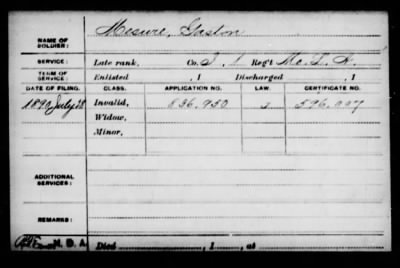 NAME OF SOLDIER: Mesure, Gaston
SERVICE: Late rank, Co. I, 1 Reg't Mo. L. A.
TERM OF SERVICE: Enlisted , 1 Discharged , 1
DATE OF FILING. CLASS. APPLICATION NO. LAW. CERTIFICATE NO.
1890 July 28 Invalid, 836.950 596.007
Widow,
Minor,
ADDITIONAL SERVICES:
REMARKS:
Died , 1 , at